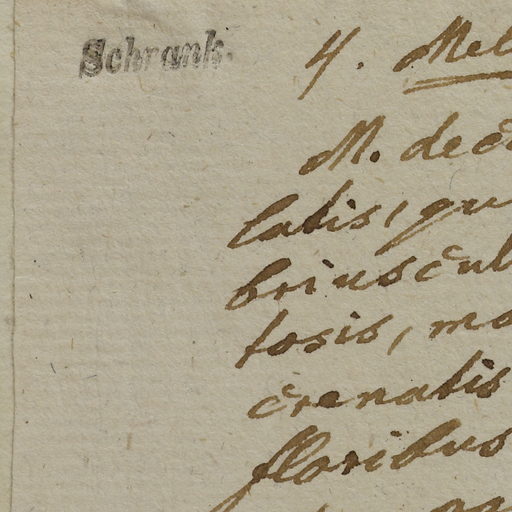 Schrank.
4. Mel
M. dec
latis, qu
briuscul
tosis, mo
crenatis
floribus